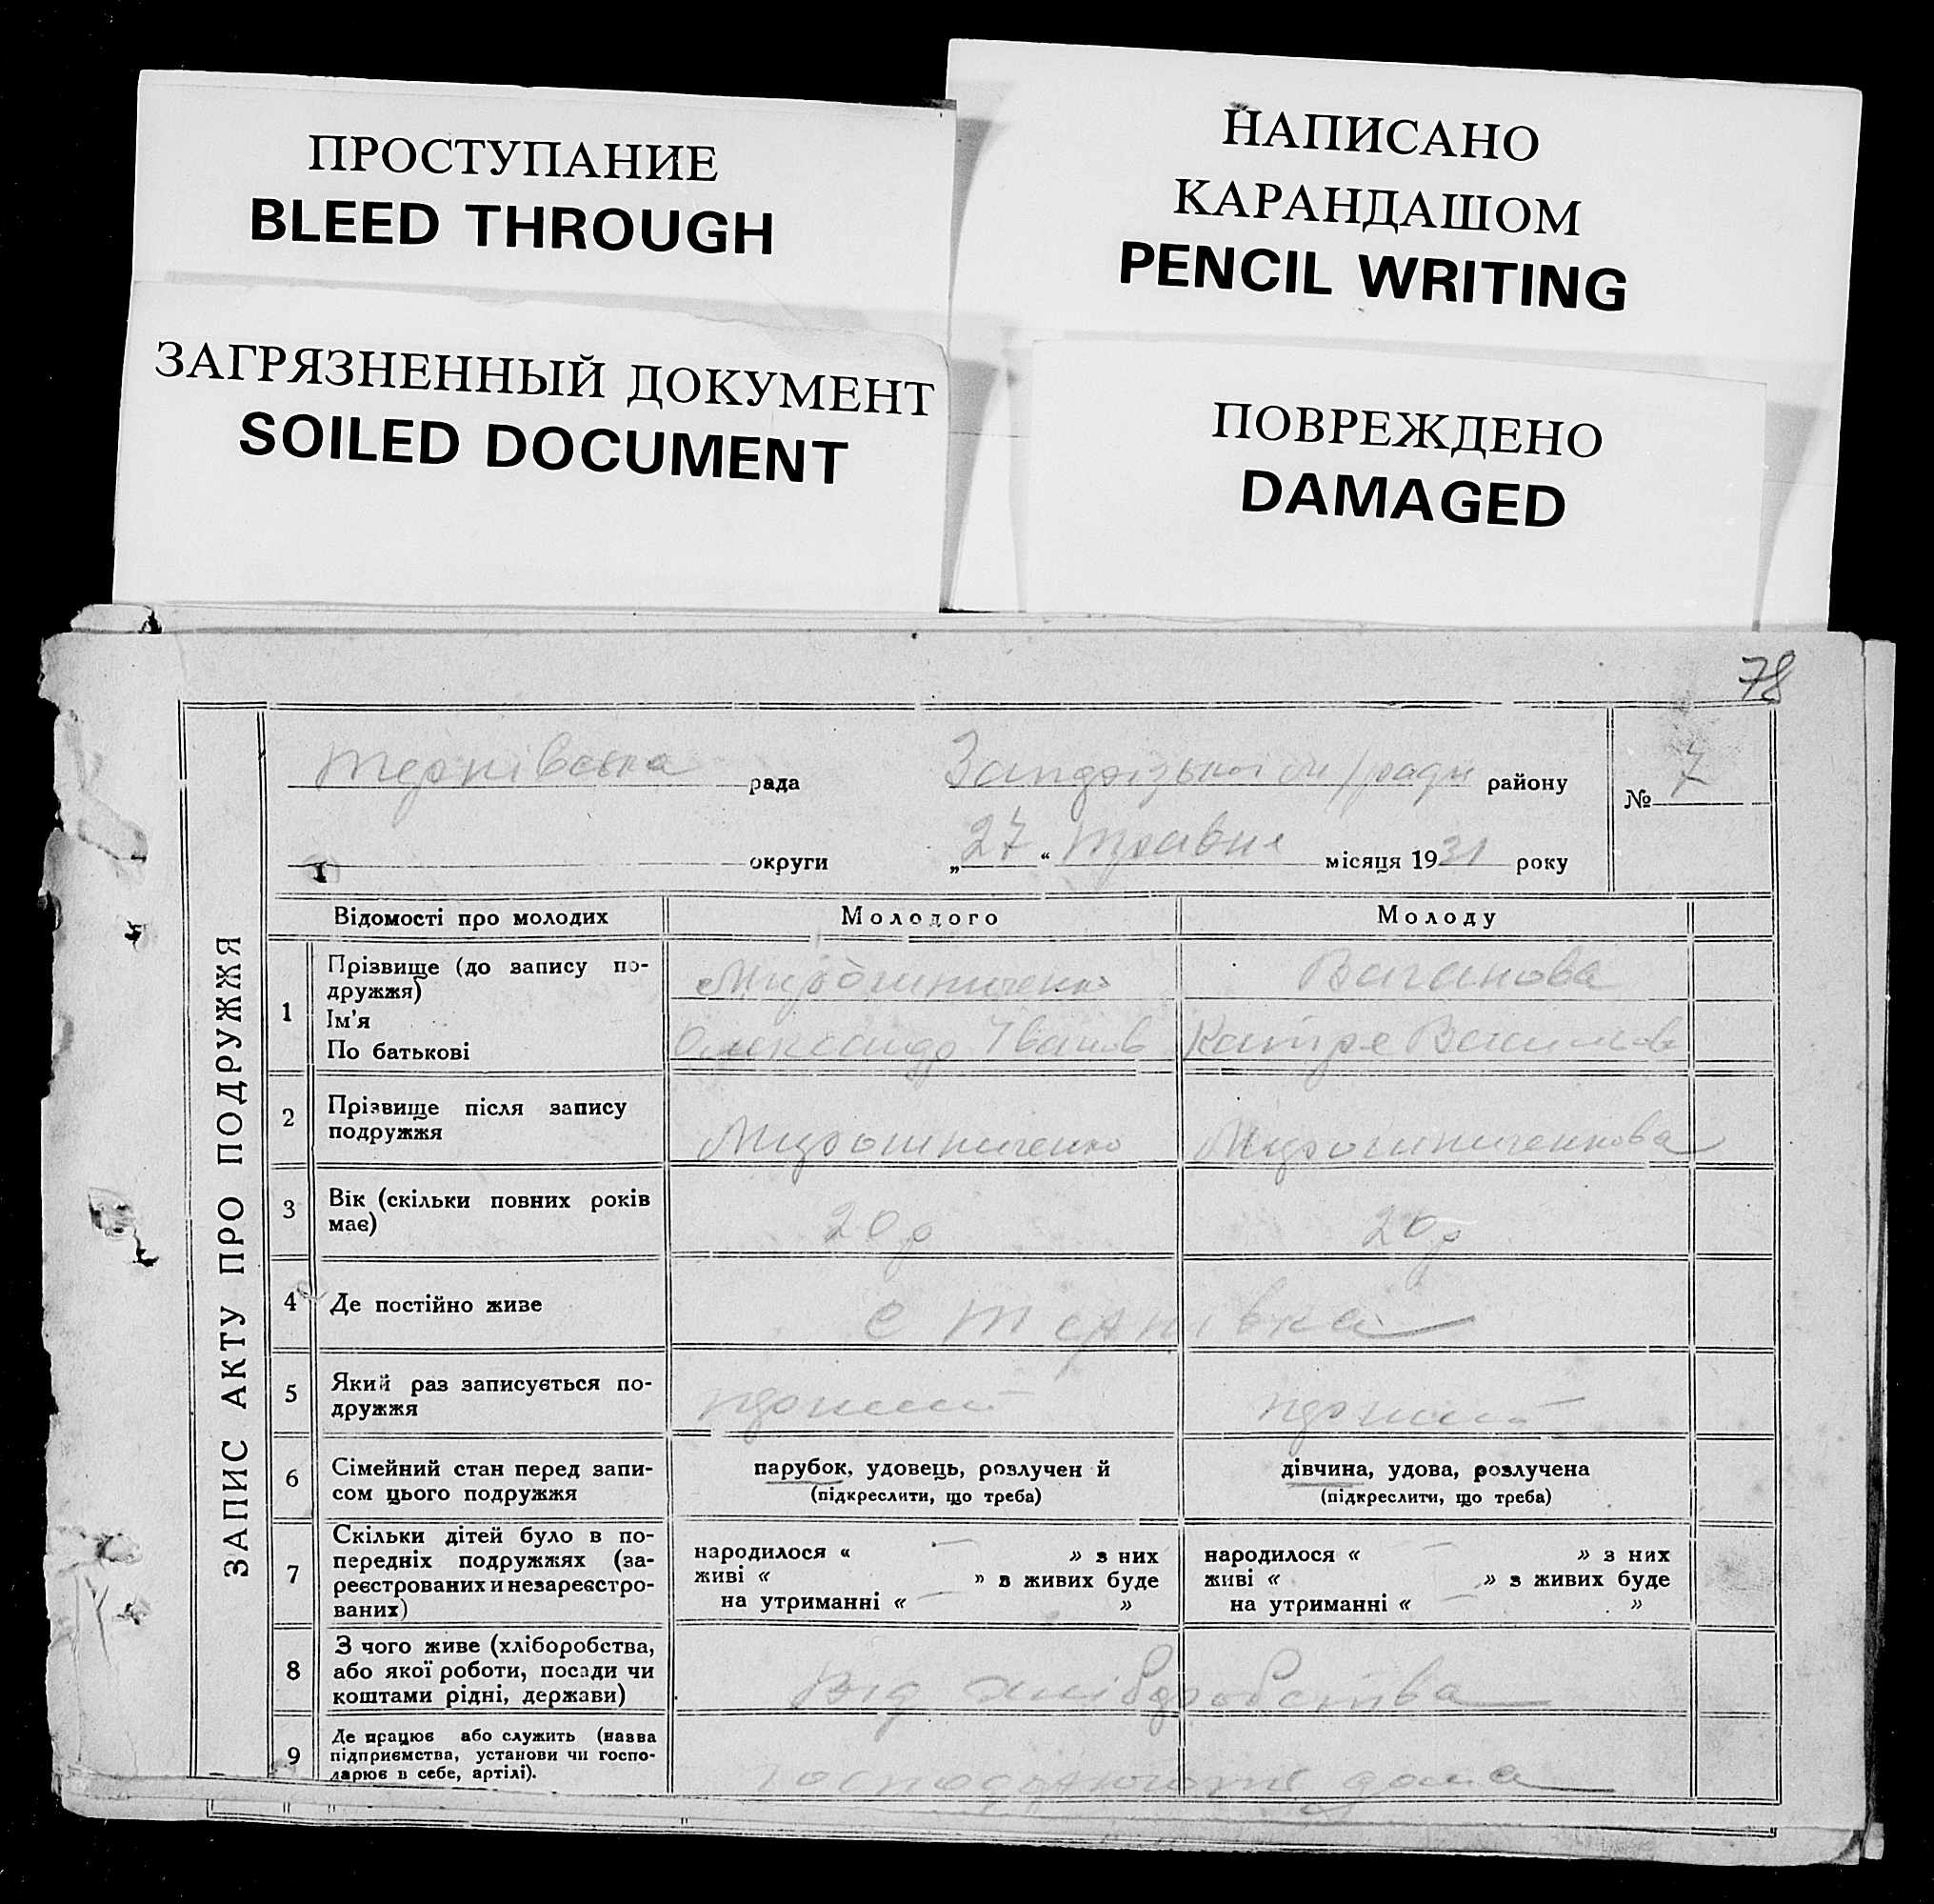 ПРОСТУПАНИЕ
BLEED THROUGH
ЗАГРЯЗНЕННЫЙ ДОКУМЕНТ
SOILED DOCUMENT
НАПИСАНО
КАРАНДАШОМ
PENCIL WRITING
ПОВРЕЖДЕНО
DAMAGED
78
ЗАПИС АКТУ ПРО ПОДРУЖЖЯ
Тернівська рада району
№ 7
округи „27“ травня місяця 1931 року
Відомості про молодих
Молодого
Молоду
1
Прізвище (до запису по-
дружжя)
Ім'я
По батькові
Мирошниченко
Олександр Іванов
Ваганова
Катря
2
Прізвище після запису
подружжя
Мирошниченко
Мирошниченкова
3
Вік (скільки повних років
має)
20 р
20 р
4
Де постійно живе
с Тернівка
5
Який раз записується по-
дружжя
перший
перший
6
Сімейний стан перед запи-
сом цього подружжя
парубок, удовець, розлучен й
(підкреслити, що треба)
дівчина, удова, розлучена
(підкреслити, що треба)
7
Скільки дітей було в по-
передніх подружжях (за-
реєстрованих и незареєстро-
ваних)
народилося « — » з них
живі « » в живих буде
на утриманні « — »
народилося « — » з них
живі « » з живих буде
на утриманні « — »
8
З чого живе (хліборобства,
або якої роботи, посади чи
коштами рідні, держави)
від хліборобства
9
Де працює або служить (назва
підприємства, установи чи госпо-
дарює в себе, артілі).
дома